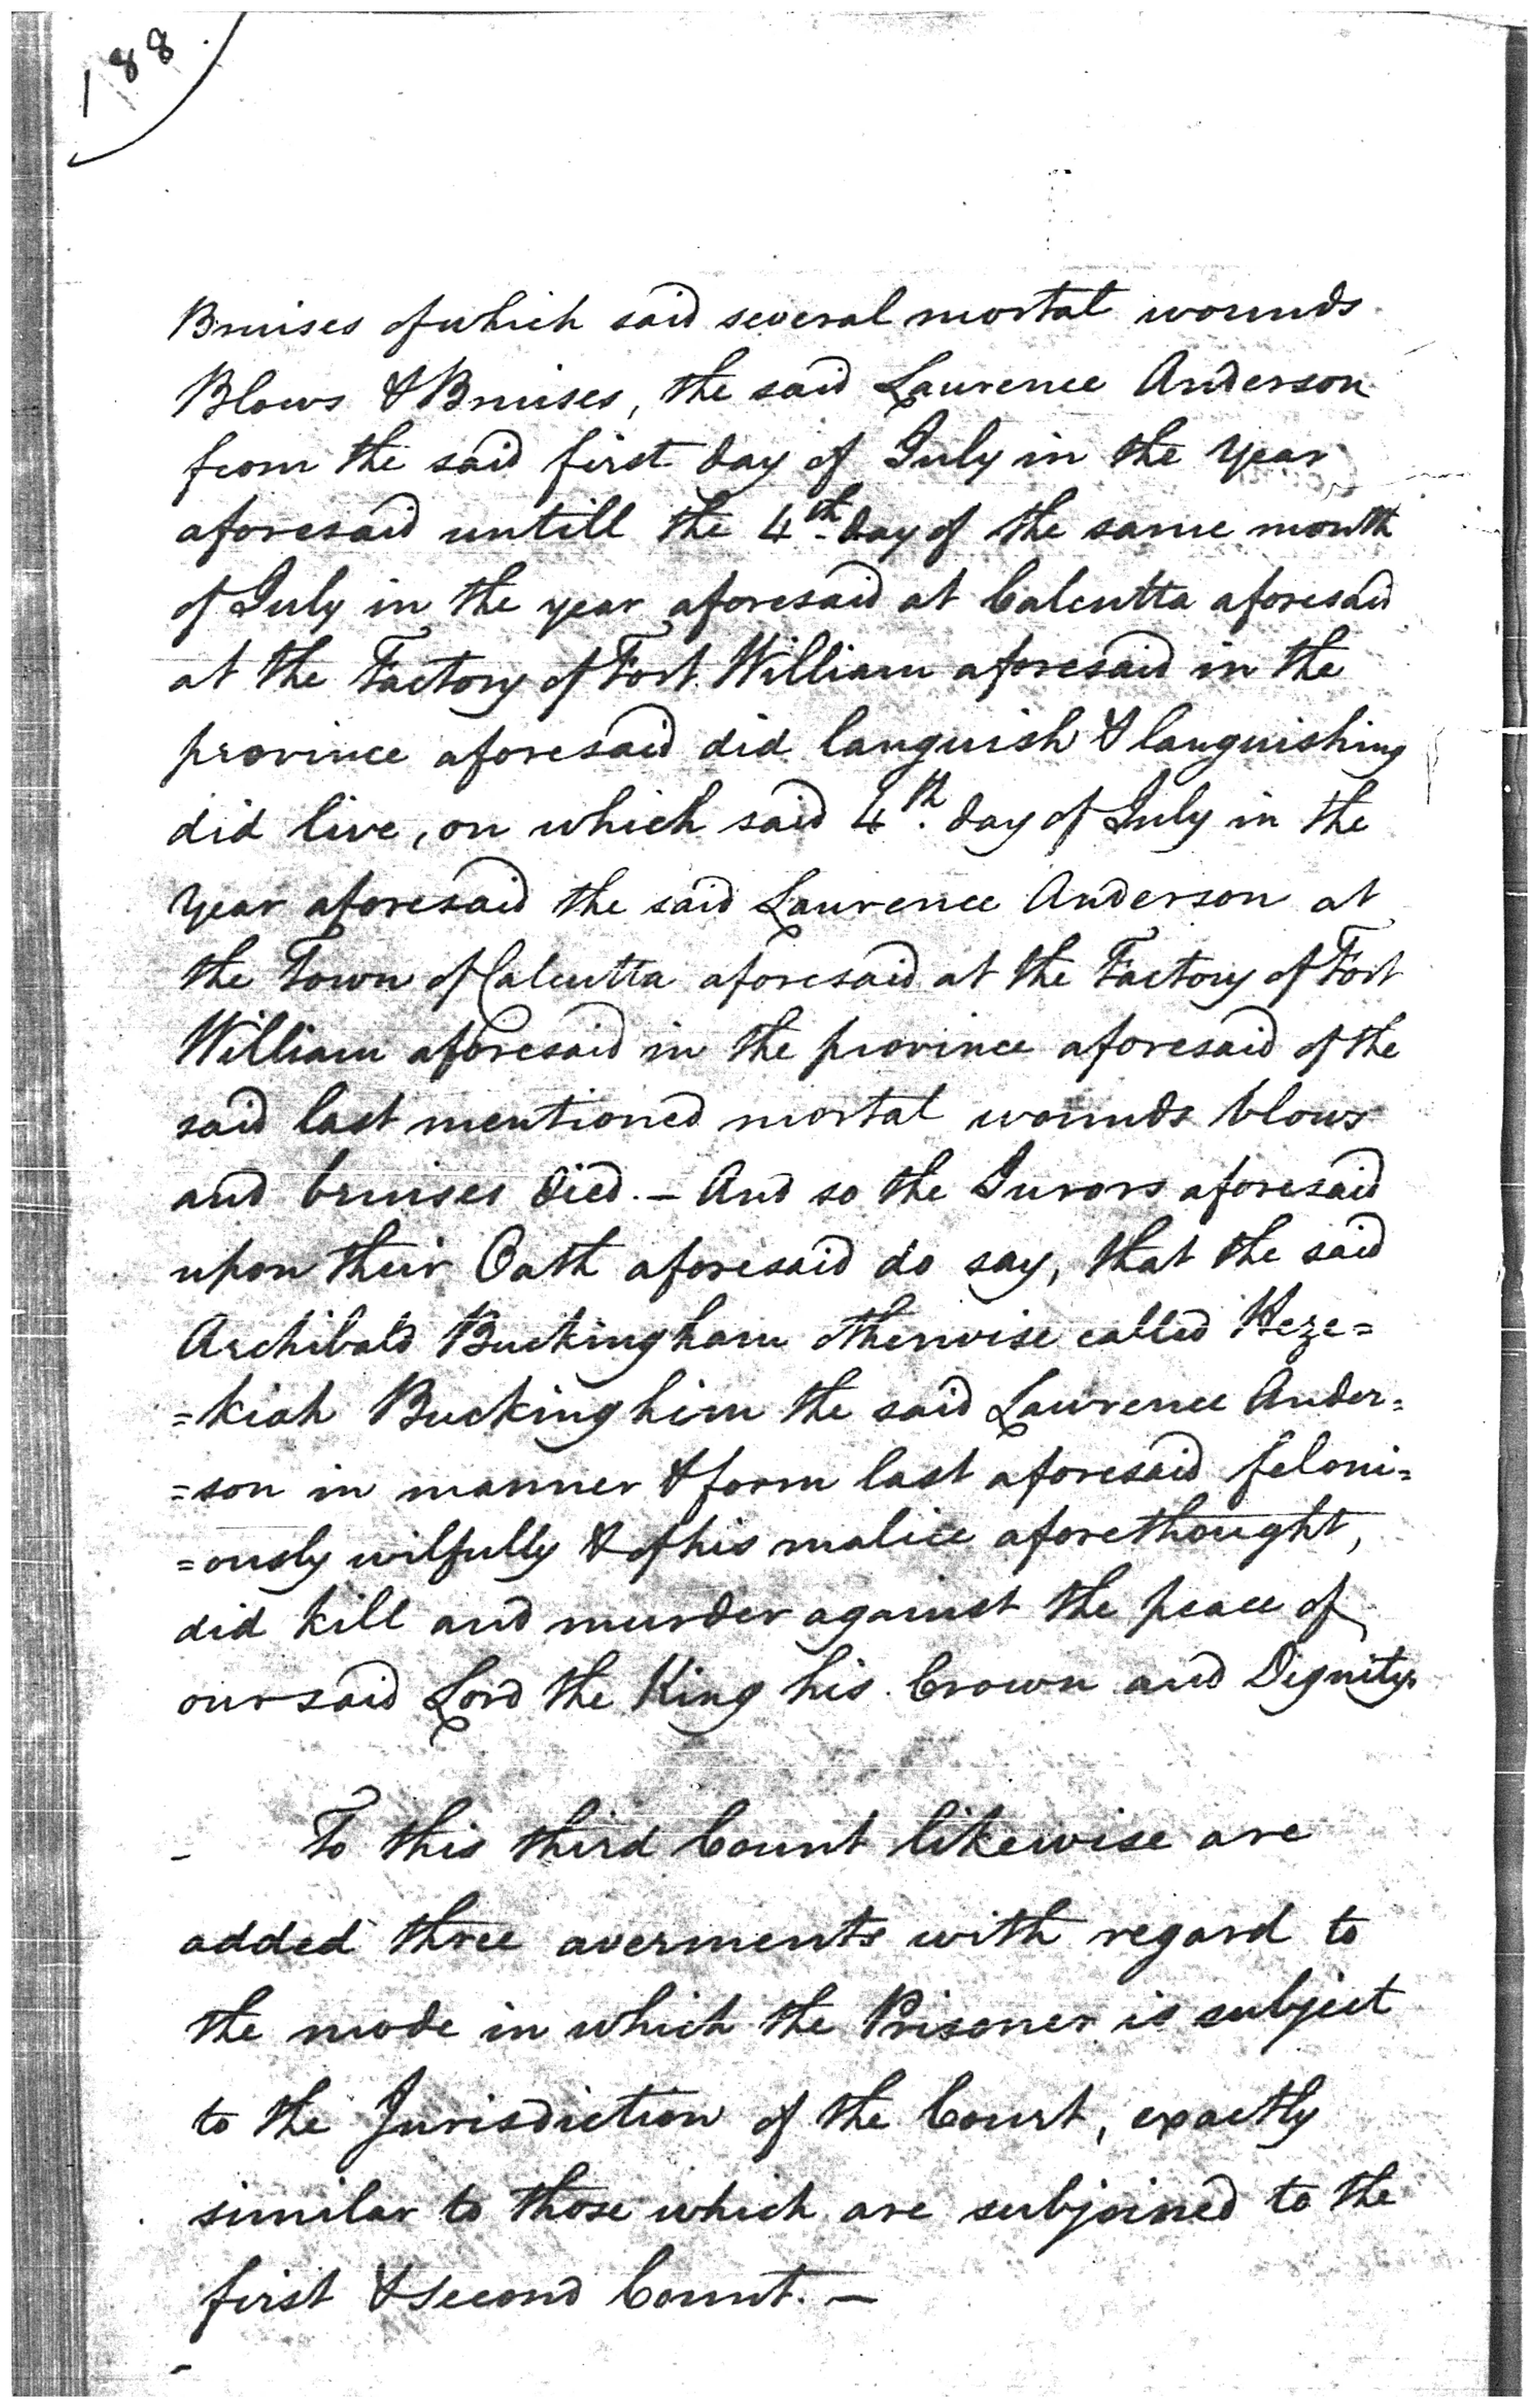 188.
Bruises of which said several mortal wounds
Blows & Bruises, the said Laurence Anderson
from the said first day of July in the year
aforesaid untill the 4th day of the same month
of July in the year aforesaid at Calcutta aforesaid
at the Factory of Fort William aforesaid in the
province aforesaid did languish & languishing
did live, on which said 4th. day of July in the
year aforesaid the said Laurence Anderson at
the Town of Calcutta aforesaid at the Factory of Fort
William aforesaid in the province aforesaid of the
said last mentioned mortal wounds blows
and bruises died. — And so the Jurors aforesaid
upon their Oath aforesaid do say, that the said
Archibald Buckingham otherwise called Heze=
=kiah Buckinghim the said Lawrence Ander=
=son in manner & form last aforesaid feloni=
=ously wilfully & of his malice aforethought,
did kill and murder against the peace of
our said Lord the King his Crown and Dignity.
- To this third Count likewise are
added three averments with regard to
the mode in which the Prisoner is subject
to the Jurisdiction of the Court, exactly
similar to those which are subjoined to the
first & second Count. —